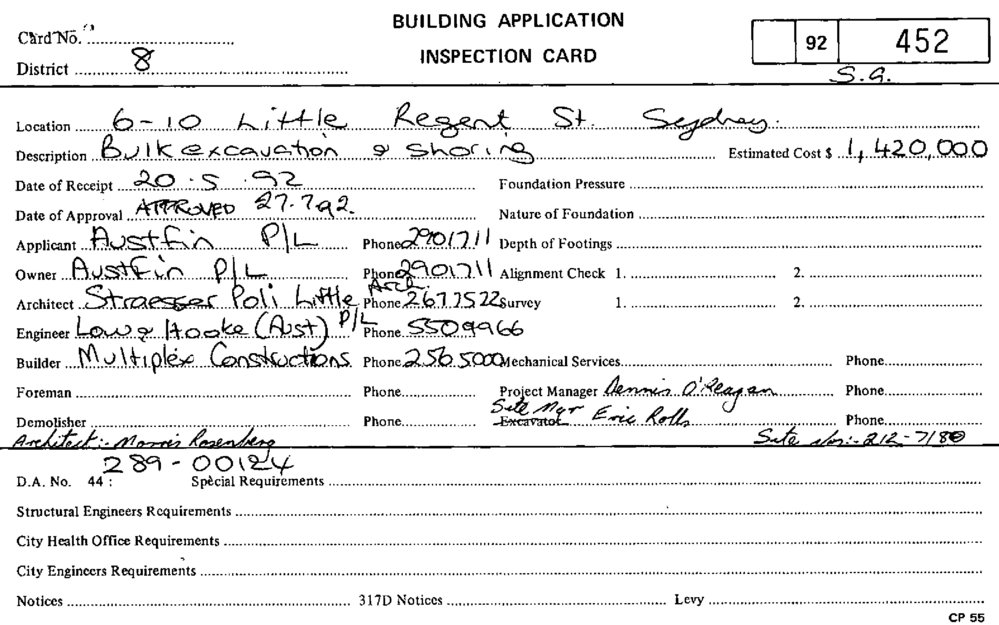 BUILDING APPLICATION
INSPECTION CARD
Card No.
District 8
92 452
S.G.
Location 6-10 Little Regent St. Sydney.
Description Bulk excavation & Shoring Estimated Cost $ 1,420,000
Date of Receipt 20.5.92 Foundation Pressure
Date of Approval APPROVED 27.7.92. Nature of Foundation
Applicant Austfin P/L Phone 2901711 Depth of Footings
Owner Austfin P/L Phone 2901711 Alignment Check 1. 2.
Architect Straesser Poli Little Arch. Phone 2677522 Survey 1. 2.
Engineer Low & Hooke (Aust) P/L Phone 5509966
Builder Multiplex Constructions Phone 256 5000 Mechanical Services Phone
Foreman Phone Project Manager Dennis O'Reagan Phone
Demolisher Phone Site Mgr Excavator Eric Rolls Phone
Architect:- Morris Rosenberg Site No:- 212-7180
289-00124
D.A. No. 44: Special Requirements
Structural Engineers Requirements
City Health Office Requirements
City Engineers Requirements
Notices 317D Notices Levy
CP 55